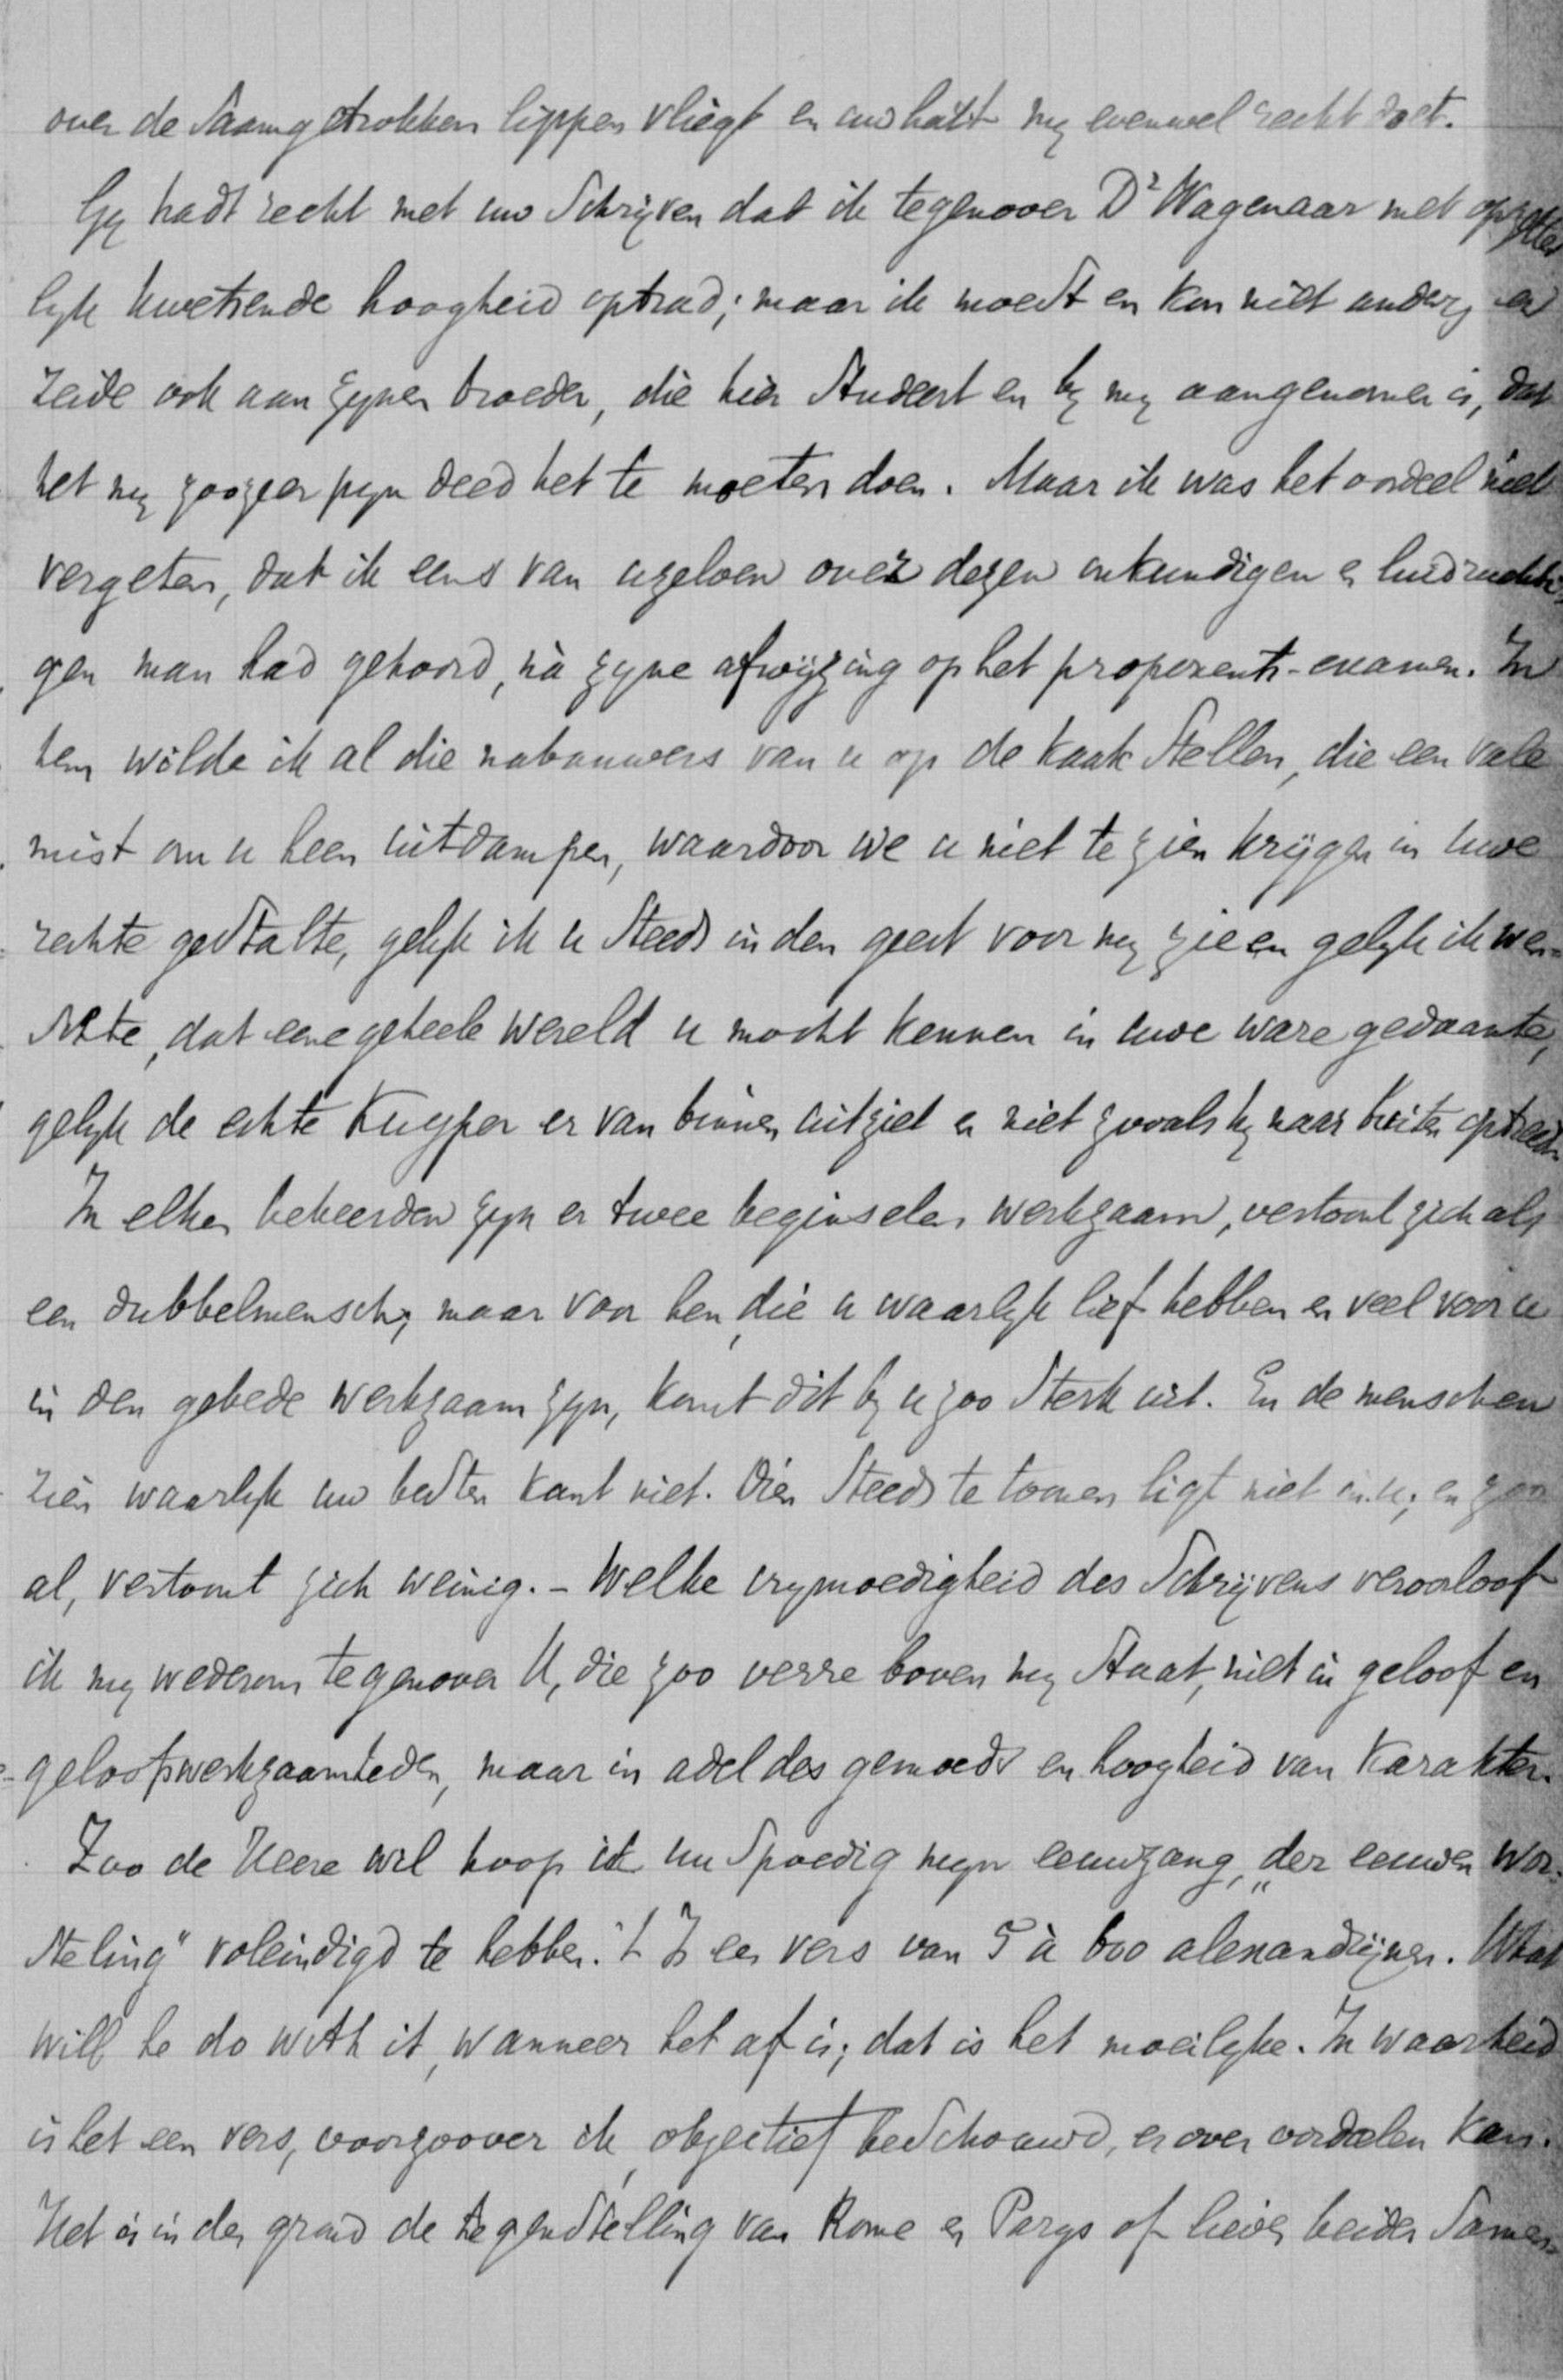 over de saamgetrokken lippen vliegt en uw hart my evenwel recht doet.
Gy hadt recht met uw schrijven dat ik tegenover Dr Wagenaar met opzette
lyk kwetsende hoogheid optrad; maar ik moest en kon niet anders en
zeide ook aan zynen broeder, die hier student en by my aangenomen is, dat
het my zoozeer pyn deed het te moeten doen. Maar ik was het oordeel niet
vergeten, dat ik eens van uzelven over dezen onkundigen en luidruchti-
gen man had gehoord, nà zyne afwijzing op het proponents-examen. In
hem wilde ik al die nabauwers van u op de kaak stellen, die een vale
mist om u heen uitdampen, waardoor we u niet te zien krijgen in uwe
rechte gestalte, gelyk ik u steeds in den geest voor my zie en gelyk ik wen-
schte, dat eene geheele wereld u mocht kennen in uwe ware gedaante,
gelyk de echte Kuyper er van binnen uitziet en niet zooals hy naar buiten optreedt.
In elken bekeerden zyn er twee beginselen werkzaam, vertoont zich als
een dubbelmensch; maar voor hen, die u waarlyk lief hebben en veel voor u
in den gebede werkzaam zyn, komt dit by u zoo sterk uit. En de menschen
zien waarlyk uw besten kant niet. Dien steeds te toonen ligt niet in u; en zoo
al, vertoont zich weinig. - Welke vrymoedigheid des schrijvens veroorloof
ik my wederom tegenover U, die zoo verre boven my staat, niet in geloof en
geloofswerkzaamheden, maar in adel des gemoeds en hoogheid van karakter.
Zoo de Heere wil hoop ik nu spoedig myn eeuwzang, „der eeuwen wor-
steling" voleindigd te hebben. 't Is een vers van 5 à 600 alexandrijnen. What
will he do with it, wanneer het af is; dat is het moeilyke. In waarheid
is het een vers, voorzoover ik, objectief beschouwd, er over oordeelen kan.
Het is in den grond de tegenstelling van Rome en Parys of liever beider samen-